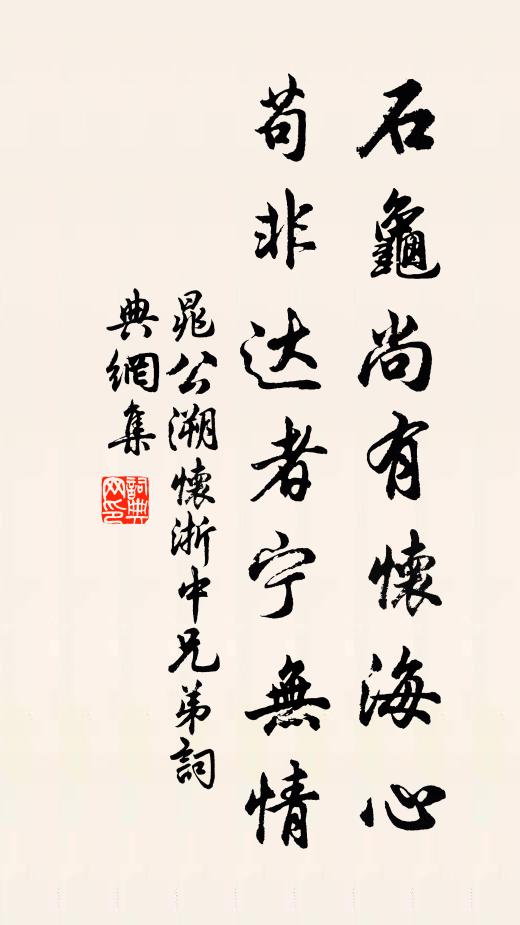 石龜尚有懷海心
苟非达者宁無情
晁公溯懷浙中兄弟詞
典網集
詞典网印